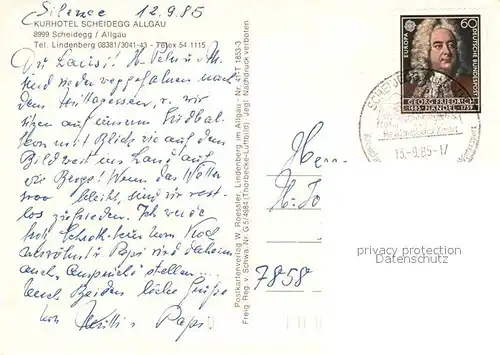 Silence 12.9.85
KURHOTEL SCHEIDEGG ALLGÄU
8999 Scheidegg / Allgäu
Tel. Lindenberg 08381/3041-43 - Telex 54 1115
sind wieder weggefahren nach
dem Mittagessen, u. wir
sitzen auf unserem Südbal-
kon mit Blick wie auf dem
Bild weit ins Land auf
die Berge! Wenn das Wetter
so bleibt, sind wir rest-
los zufrieden. Ich werde
vom Koch
verwöhnt u. Papi wird daheim
auch Ansprüche stellen ...
Euch Beiden liebe Grüße
von Mutti u. Papi
Postkartenverlag W. Roessler, Lindenberg im Allgäu · Nr. 45T 1853-3
Freig. Reg. v. Schwa. Nr. G 5/4984 (Thorbecke-Luftbild) Jegl. Nachdruck verboten
EUROPA
60
DEUTSCHE BUNDESPOST
GEORG FRIEDRICH
1685 HÄNDEL 1759
13.-9.85-17
Herrn
7858
privacy protection
Datenschutz